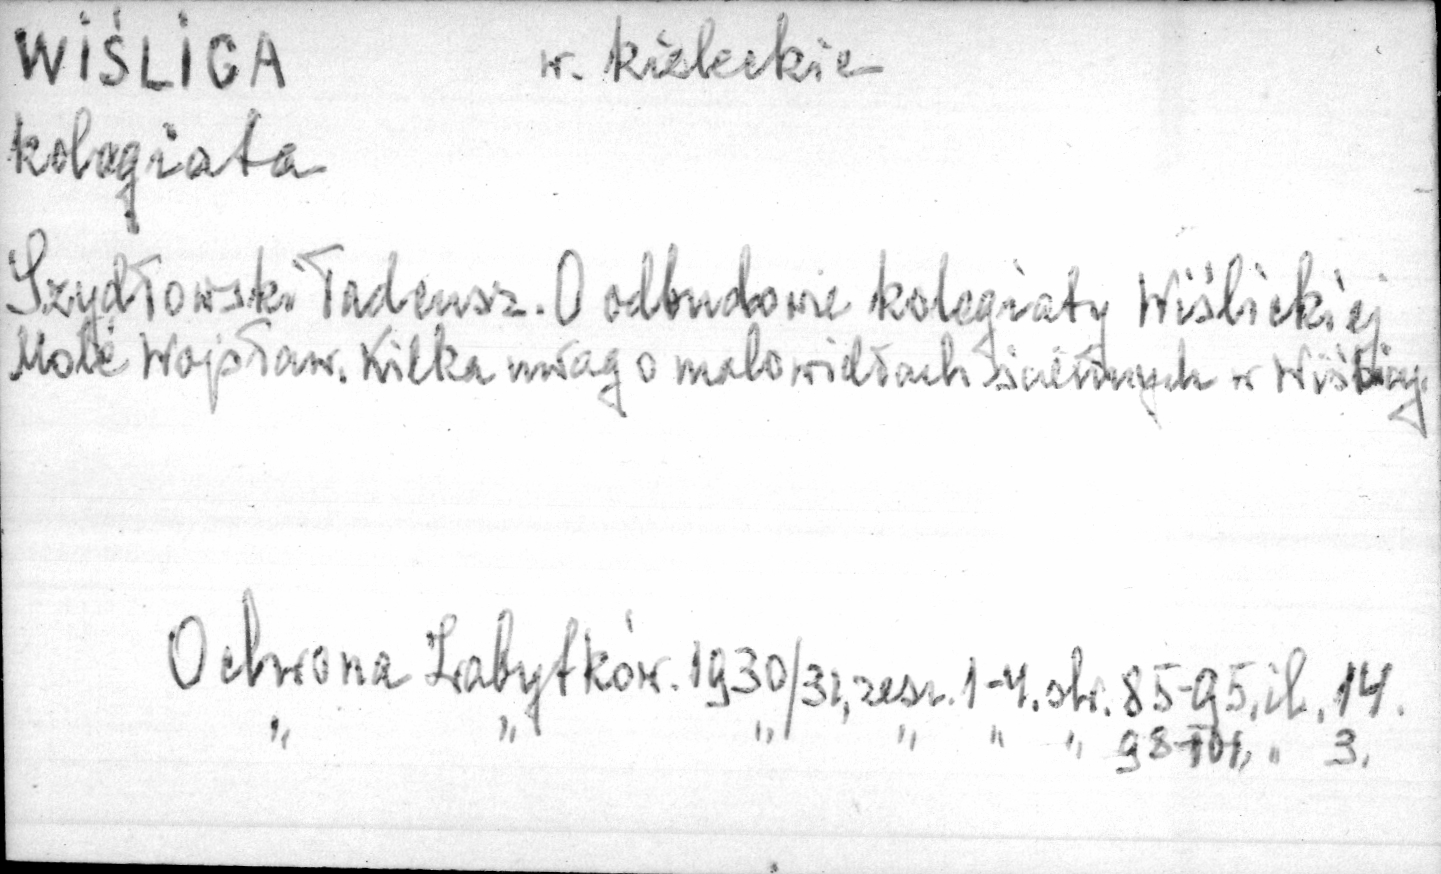 WIŚLICA w. kieleckie
kolegiata
Szydłowski Tadeusz. O odbudowie kolegiaty Wiślickiej
Molè Wojsław. Kilka uwag o malowidłach ściennych w Wiślicy.
Ochrona Zabytków. 1930/31, zesz. 1-4. str. 85-95, il. 14.
" " " " " " 98-101, " 3.